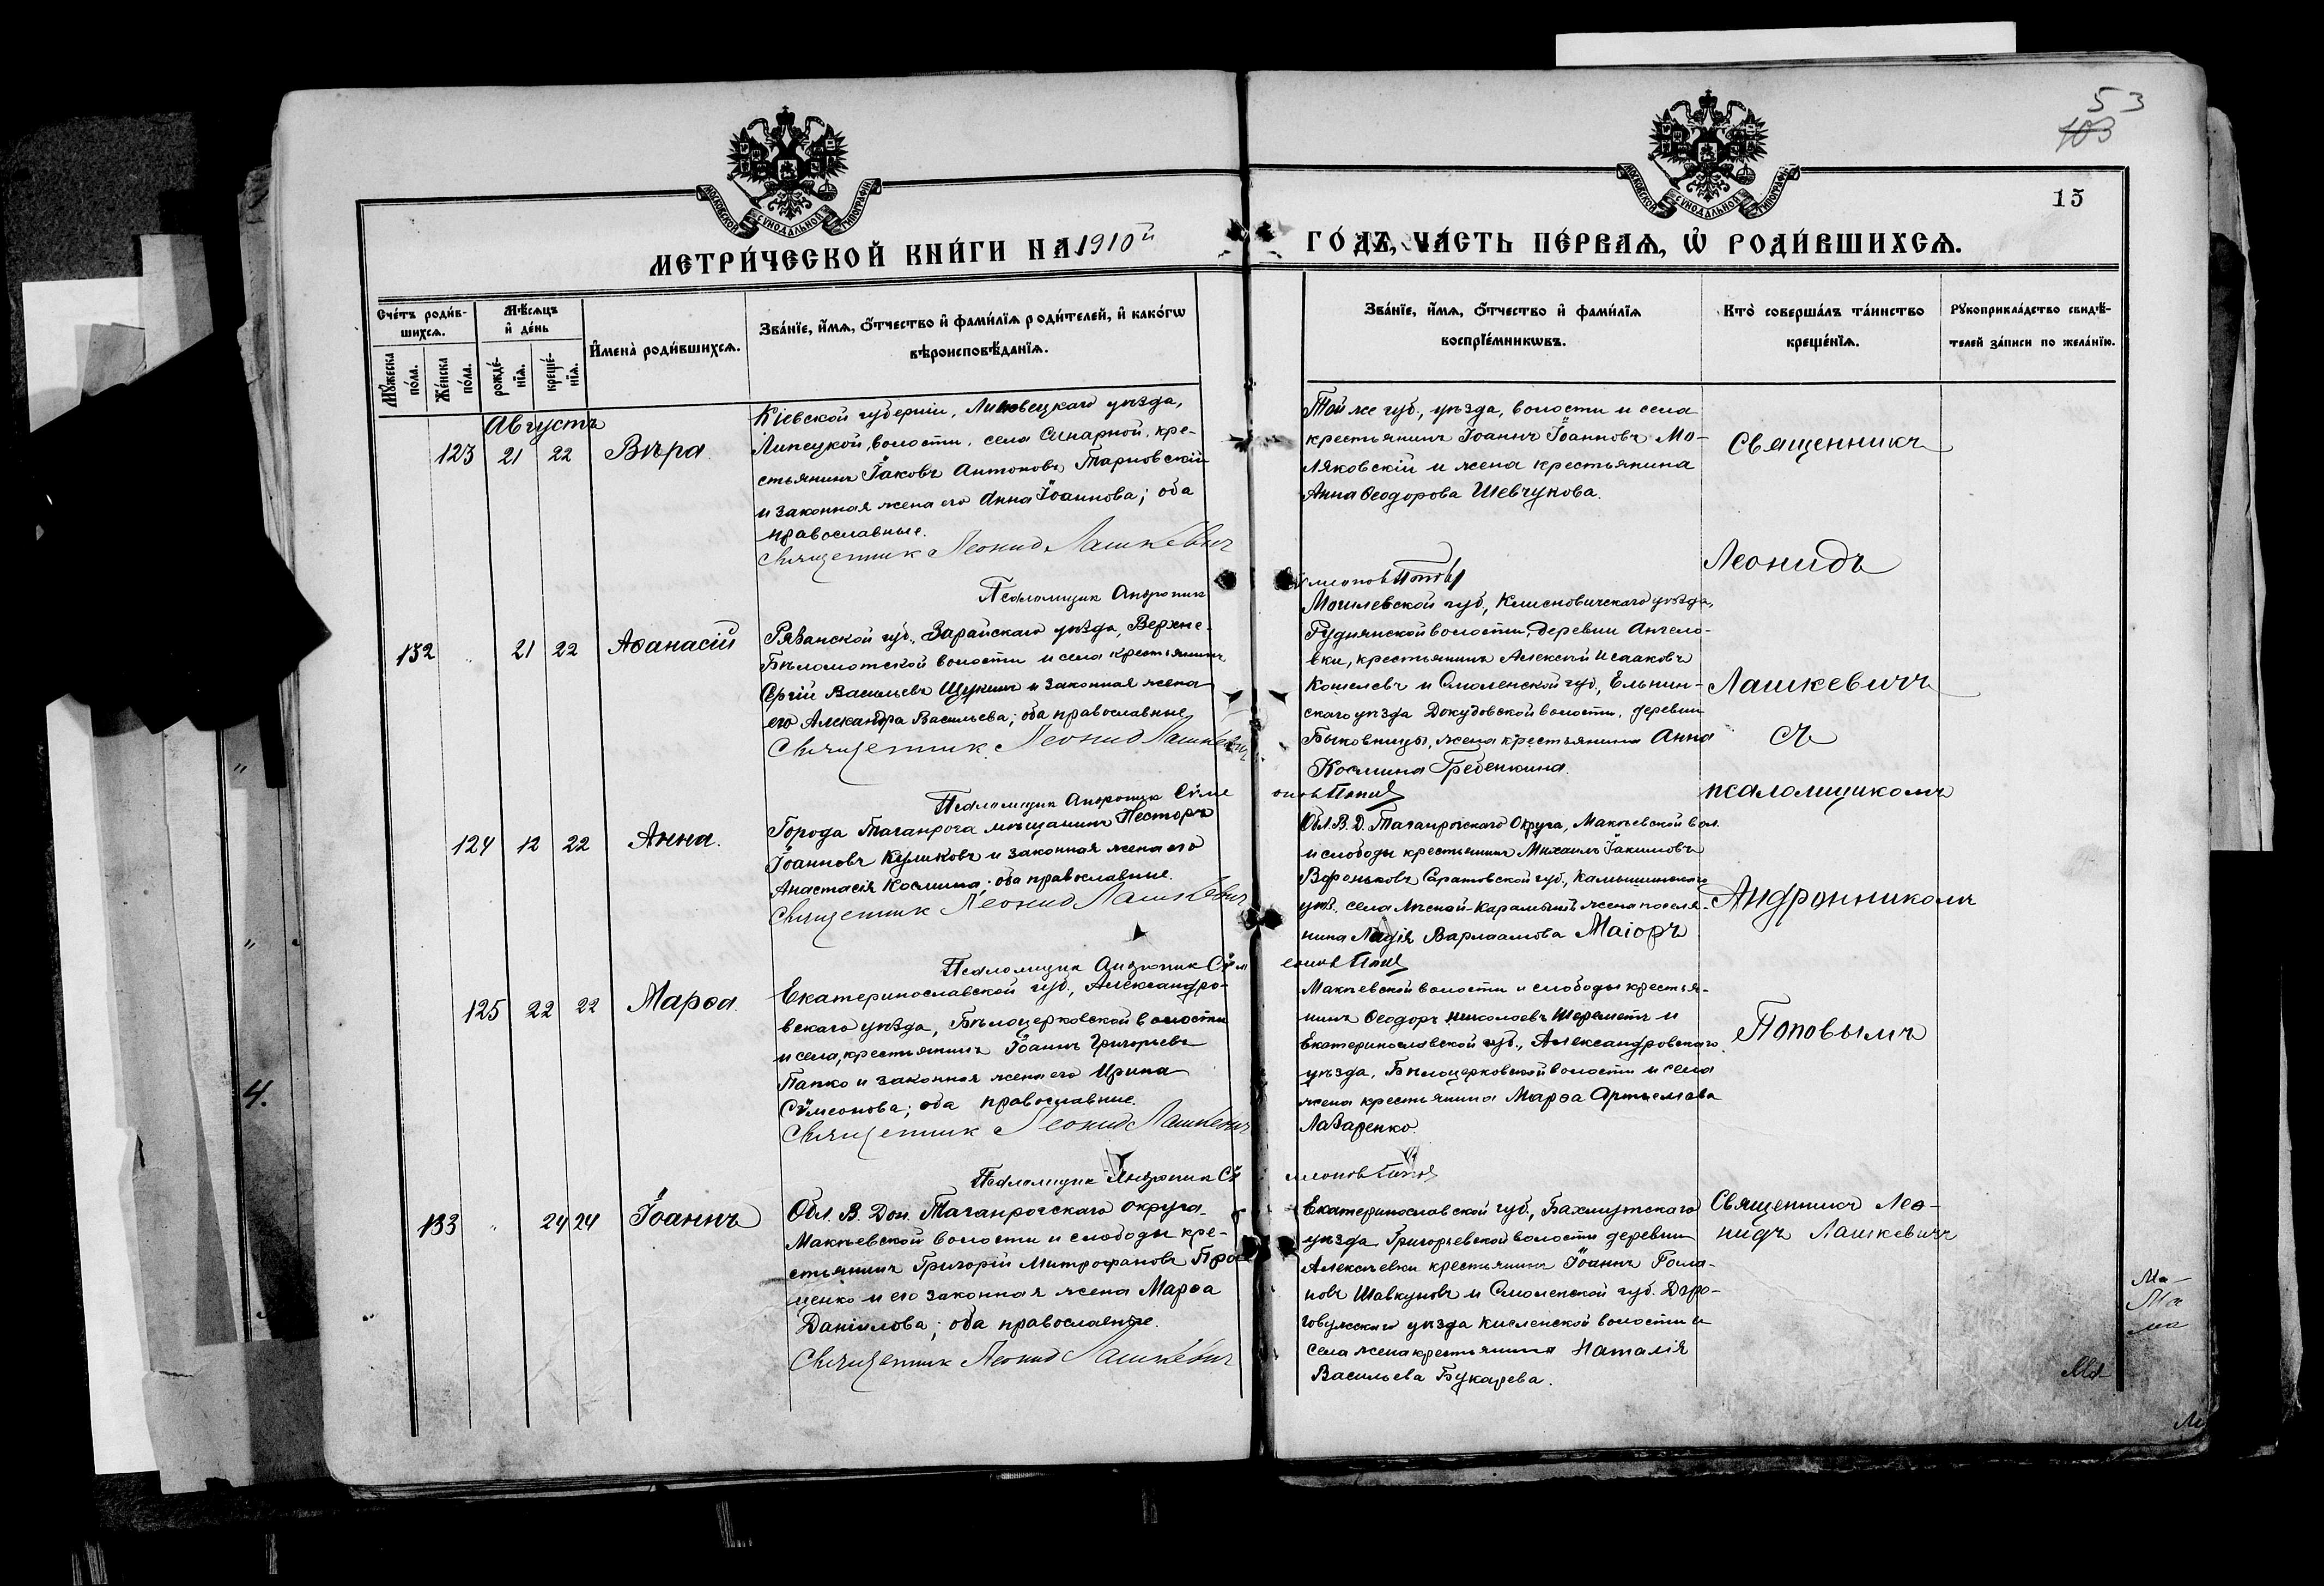 53
103
15
МОСКОВСКОЙ СУНОДАЛЬНОЙ ТИПОГРАФІИ
МОСКОВСКОЙ СУНОДАЛЬНОЙ ТИПОГРАФІИ
МЕТРИ́ЧЕСКОЙ КНИ́ГИ НА 1910й
ГО́ДЪ, ЧА́СТЬ ПЕ́РВАѦ, Ѡ҆ РОДИ́ВШИХСѦ.
Сче́тъ роди́в-
шихсѧ.
Мꙋ́жеска
по́ла.
Же́нска
по́ла.
Мѣ́сѧцъ
и҆ де́нь
рожде́-
нїѧ.
креще́-
нїѧ.
И҆мена̀ роди́вшихсѧ.
Зва́нїе, и҆́мѧ, ѻ҆́тчество и҆ фами́лїѧ роди́телей, и҆ како́гѡ
вѣроисповѣ́данїѧ.
Зва́нїе, и҆́мѧ, ѻ҆́тчество и҆ фами́лїѧ
воспрїе́мникѡвъ.
Кто̀ соверша́лъ та́инство
креще́нїѧ.
Рꙋкоприкла́дство свидѣ́-
телей за́писи по жела́нїю.
Августъ
123 21 22 Вѣра.
Кіевской губерніи, Липовецкаго уѣзда,
Липецкой волости, села Синарной, кре-
стьянинъ Іаковъ Антоновъ Тарновскій
и законная жена его Анна Іоаннова; оба
православные.
Священник Леонид Лашкевич
Псаломщик Андроник
Той же губ., уѣзда, волости и села
крестьянинъ Іоаннъ Іоанновъ Мо-
ляковскій и жена крестьянина
Анна Ѳеодорова Шевчукова.
меонов Попов
Священникъ
Леонидъ
Лашкевичъ
съ
псаломщикомъ
Андронникомъ
Поповымъ
132 " 21 22 Аѳанасій
Рязанской губ., Зарайскаго уѣзда, Верхне-
Бѣломотской волости и села крестьянинъ
Сергій Васильевъ Щукинъ и законная жена
его Александра Васильева; оба православные
Священник Леонид Лашкевич
Псаломщик Андроник Сѵме
Могилевской губ., Климовичскаго уѣзда,
Руднянской волости, деревни Ангело-
вки, крестьянинъ Алексѣй Исааковъ
Кошелевъ и Смоленской губ., Ельнин-
скаго уѣзда Докудовской волости, деревни
Быковницы, жена крестьянина Анна
Космина Гребенкина.
онов Попов
124 12 22 Анна.
Города Таганрога мѣщанинъ Несторъ
Іоанновъ Куликовъ и законная жена его
Анастасія Космина; оба православные.
Священник Леонид Лашкевич
Псаломщик Андроник Сѵм
Обл. В. Д. Таганрогскаго Округа, Макѣевской вол.
и слободы крестьянинъ Михаилъ Іакимовъ
Вороньковъ Саратовской губ., Камышинскаго
уѣз. села Лѣсной-Карамышъ жена поселя-
нина Варлаамова Маіоръ
еонов Попов
125 22 22 Марѳа.
Екатеринославской губ., Александро-
вскаго уѣзда, Бѣлоцерковской волости
и села, крестьянинъ Іоаннъ Григорьевъ
Папко и законная жена его Ирина
Сѵмеонова; оба православные.
Священник Леонид Лашкевич
Псаломщик Андроник Сѵ
Макѣевской волости и слободы крестья-
нинъ Ѳеодоръ Николаевъ Шереметъ и
Екатеринославской губ., Александровскаго
уѣзда, Бѣлоцерковской волости и села
жена крестьянина Марѳа Артьемава
Лазаренко.
меонов Попов
133 " 24 24 Іоаннъ
Обл. В. Дон. Таганрогскаго округа,
Макѣевской волости и слободы кре-
стьянинъ Григорій Митрофановъ Про-
ценко и его законная жена Марѳа
Даніилова; оба православные.
Священник Леонид Лашкевич
Екатеринославской губ., Бахмутскаго
уѣзда Григорьевской волости деревни
Алексѣевки крестьянинъ Іоаннъ Рома-
новъ Шавкуновъ и Смоленской губ. Доро-
гобужскаго уѣзда Кисленской волости и
села жена крестьянина Наталія
Васильева Букарева.
Священникъ Лео-
нидъ Лашкевичъ
4.
Ма-
Ма
ма
Ма